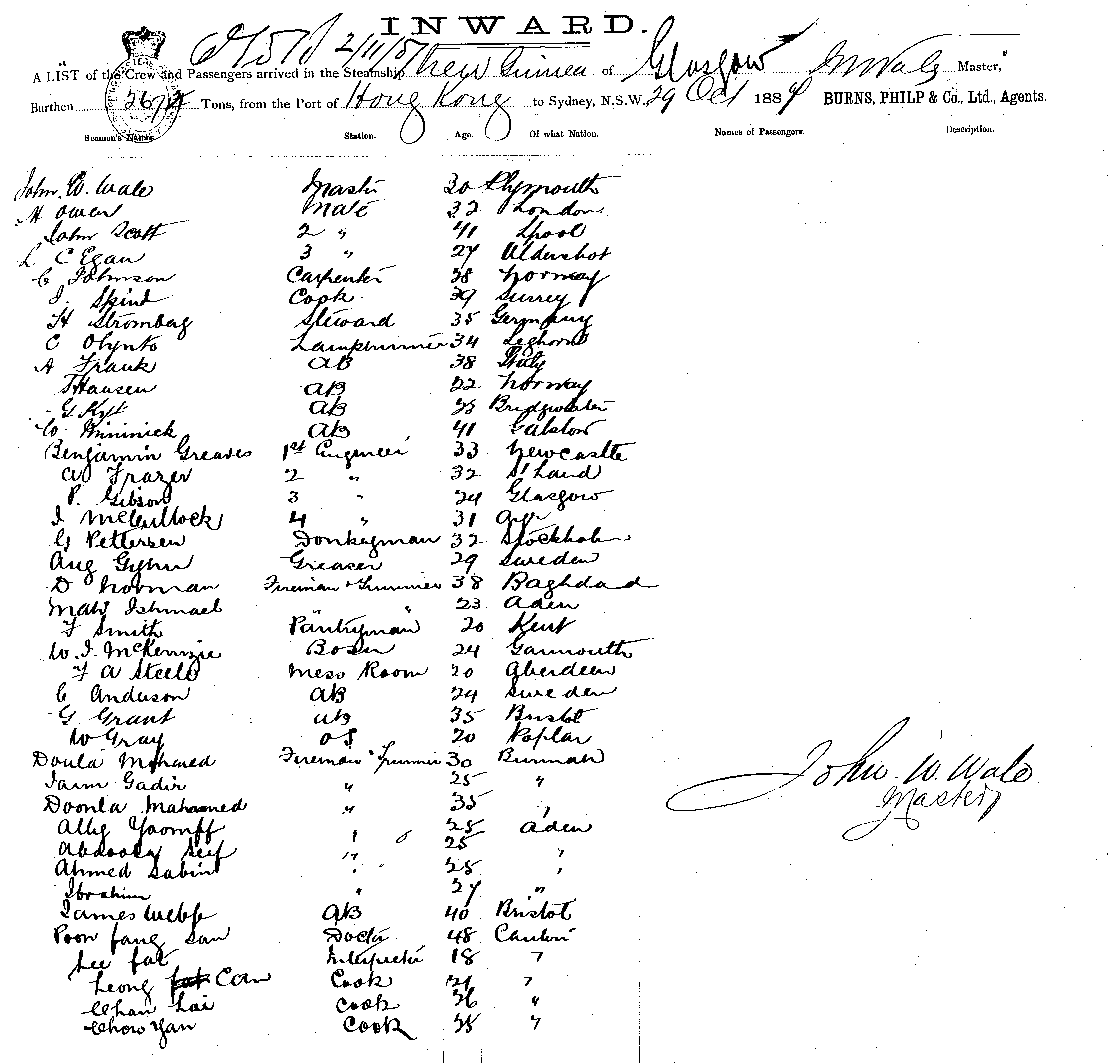 INWARD.
A LIST of the Crew and Passengers arrived in the Steamship New Guinea of Glasgow J W Wale Master,
Burthen Tons, from the Port of Hong Kong to Sydney, N.S.W. 29 Oct 188 BURNS, PHILP & Co., Ltd., Agents.
Seamen's Names. Station. Age. Of what Nation. Names of Passengers. Description.
John W. Wale Master 30 Plymouth
H Owen Mate 32 London
John Scott 2 " 41 Lpool
L C Egan 3 " 27 Aldershot
C Johnson Carpenter 38 Norway
J. Cook 39 Surrey
H Stromberg Steward 35 Germany
C Olynto Lamptrimmer 34 Leghorn
A Frank AB 38 Italy
J Hansen AB 22 Norway
G AB Bridgwater
W. AB 41
Benjamin Greaves 1st Engineer 33 Newcastle
A Frazer 2 " 32 S'land
P. Gibson 3 " 24 Glasgow
J McCullock 4 " 31 Ayr
G Pettersen Donkeyman 32 Stockholm
Aug Greaser 29 Sweden
D Norman Fireman & Trimmer 38 Baghdad
Ishmael " " 23 Aden
F Smith Pantryman 20 Kent
W. J. McKenzie Bosun 24 Garmouth
F A Steele Mess Room 20 Aberdeen
C Anderson AB 24 Sweden
G Grant AB 35 Bristol
W Gray OS 20 Poplar
Doula Mohamed Fireman & Trimmer 30 Burmah
Gadir " 25 "
Doonla Mahamed " 35 "
Ally 25 Aden
Seif " 25 "
Ahmed " 25 "
Ibrahim " 27 "
James Webb AB 40 Bristol
Poon fang san Doctor 48 Canton
Lee fat Interpreter 18 "
Leong Cook "
Chan Lai Cook 36 "
Chow Yan Cook "
John W. Wale
Master